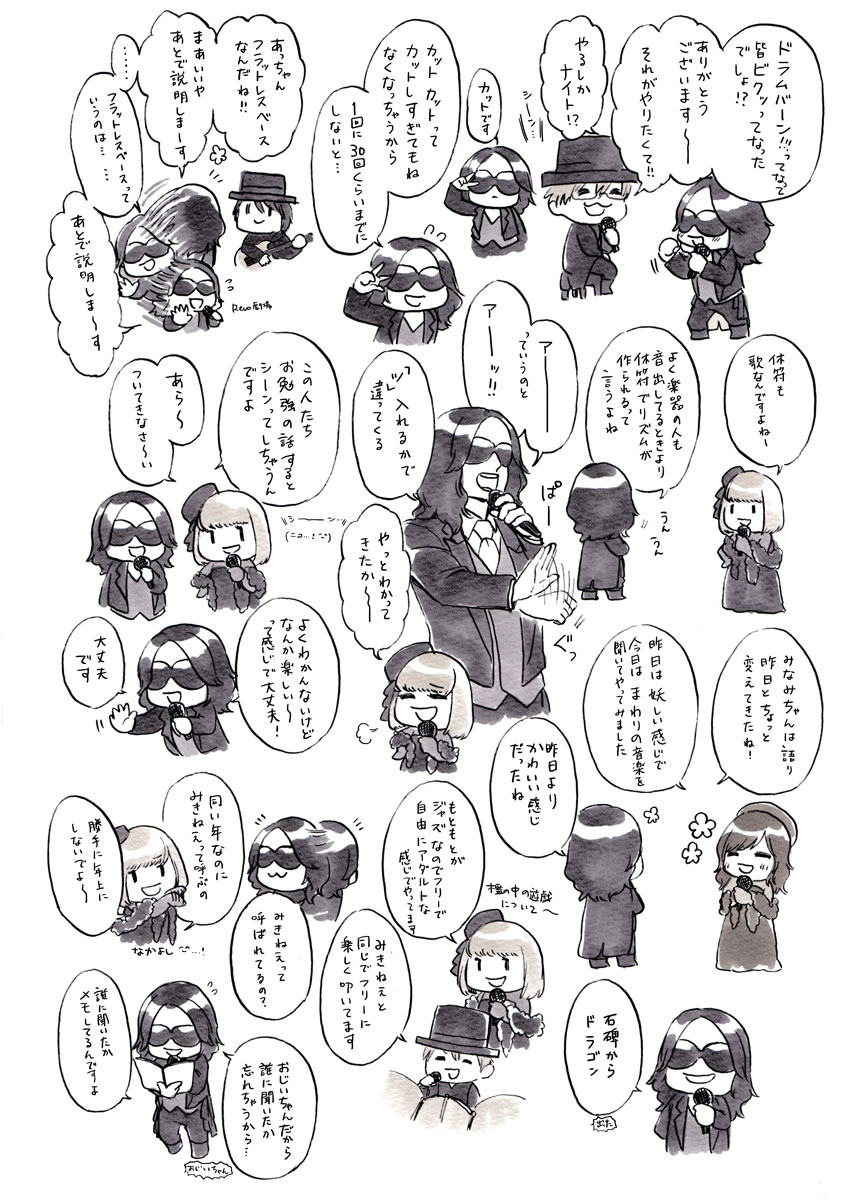 ドラムバーン!!ってなって
皆ビクッってなった
でしょ!?
ありがとう
ございます〜〜
それがやりたくて!!
やるしか
ナイト!?
シーン…
カットです
カットカットって
カットしすぎてもね
なくなっちゃうから
1回に30回くらいまでに
しないと…
あっちゃん
フラットレスベース
なんだね!!
まあいいや
あとで説明しまーす
……
フラットレスベースって
いうのは……
あとで説明しま〜す
Revo劇場
休符も
歌なんですよねー
よく楽器の人も
音出してるときより
休符でリズムが
作られるって
言うよね
うん
うん
アー
っていうのと
アーーッ!!
「ッ」
入れるかで
違ってくる
ぱー
ぐっ
やっとわかって
きたか〜〜
この人たち
お勉強の話すると
シーンってしちゃうん
ですよ
シーーン…
(ニコ…!)
あら〜
ついてきなさ〜い
よくわかんないけど
なんか楽しい〜
って感じで大丈夫!
大丈夫
です
みなみちゃんは語り
昨日とちょっと
変えてきたね!
昨日は妖しい感じで
今日はまわりの音楽を
聞いてやってみました
昨日より
かわいい感じ
だったね
檻の中の遊戯
について〜
もともとが
ジャズなのでフリーで
自由にアダルトな
感じでやってます
みきねえと
同じでフリーに
楽しく叩いてます
みきねえって
呼ばれてるの?
同い年なのに
みきねえって呼ぶの
勝手に年上に
しないでよ〜
なかよし…!
石碑から
ドラゴン
出た
おじいちゃんだから
誰に聞いたか
忘れちゃうから…
誰に聞いたか
メモしてるんですよ
おじいちゃん